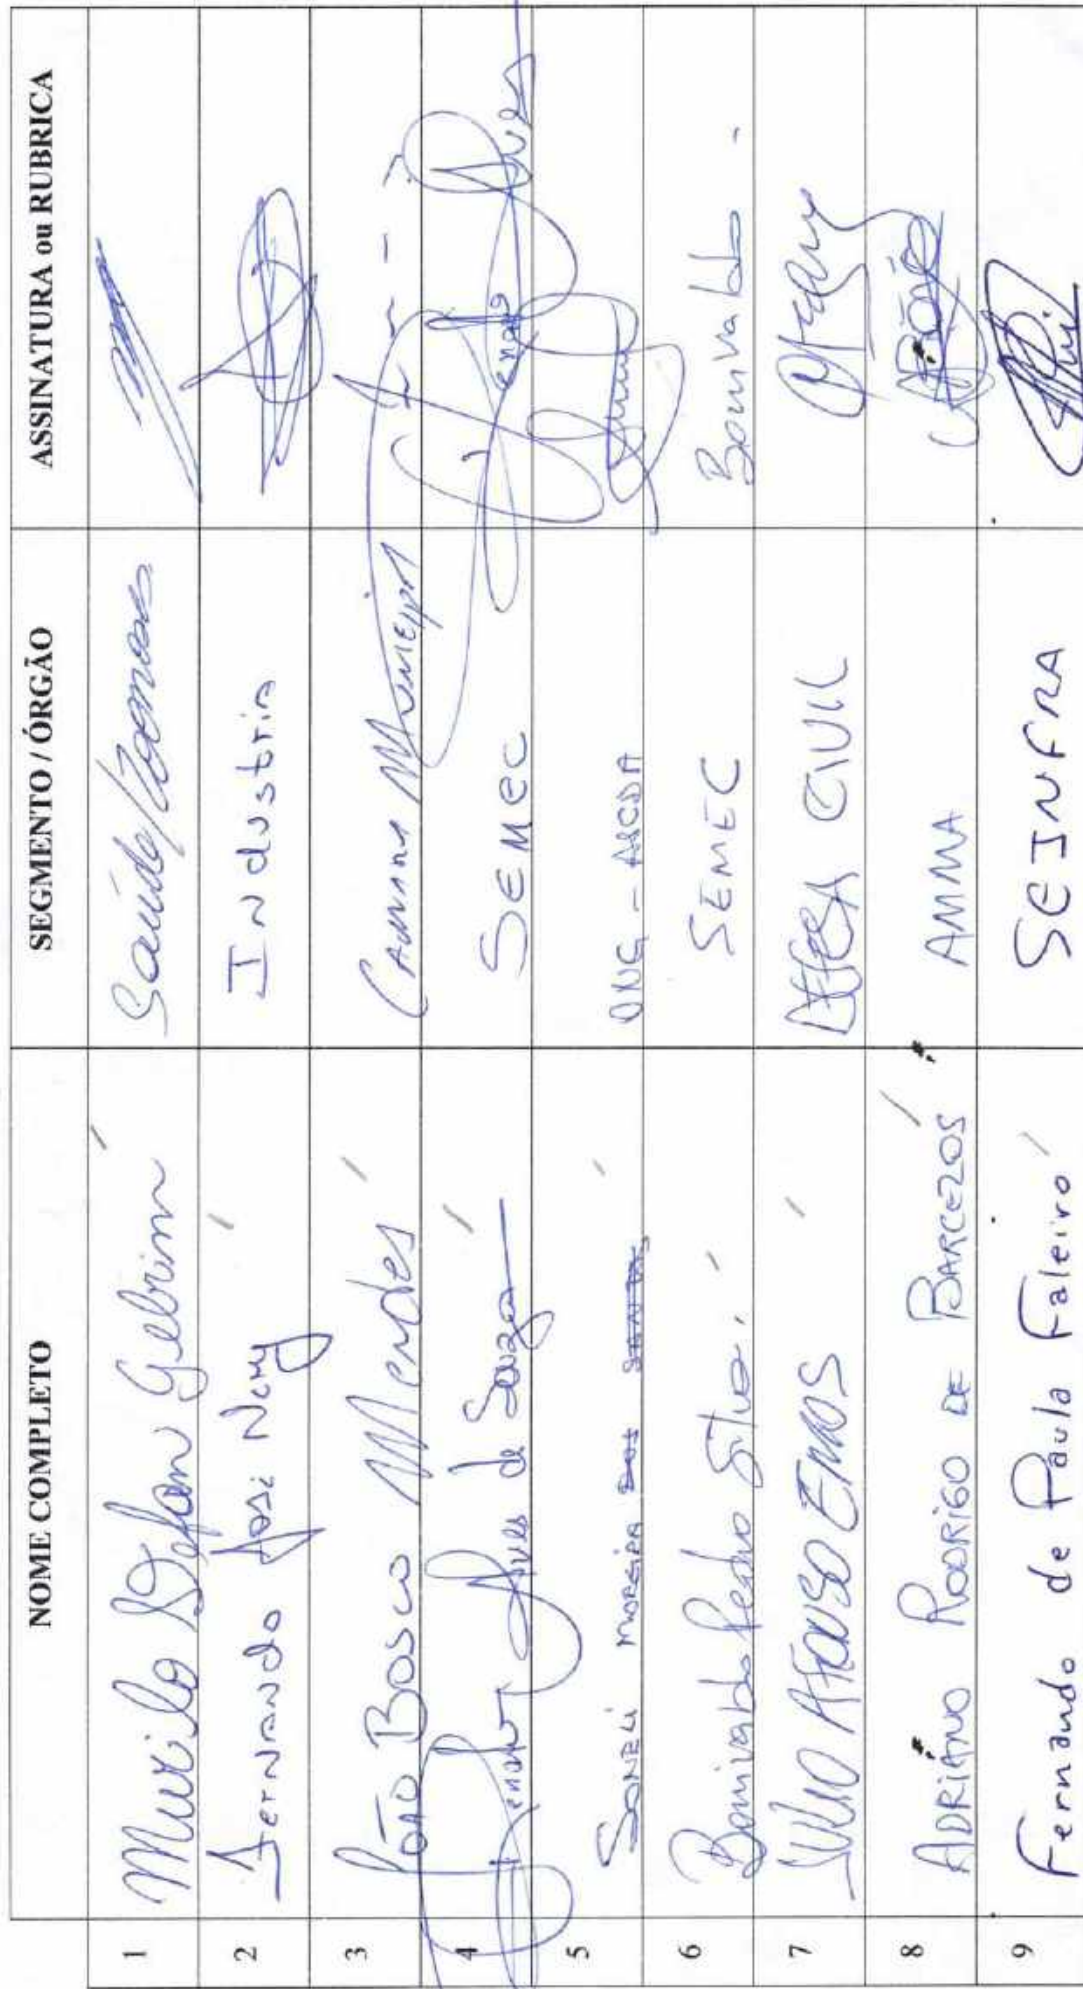 NOME COMPLETO SEGMENTO / ÓRGÃO ASSINATURA ou RUBRICA
1 Murilo Stefan Gebrim Saúde/Zoonoses
2 Fernando José Nery INdustria
3 João Bosco Mendes CAmara Municipal
4 Alves de Souza SEMEC
5 SONELI MOREIRA DOS SANTOS ONG - ASCDA
6 Bonivaldo Pedro Silva. SEMEC Bonivaldo -
7 JULIO AFONSO EMOS DEFESA CIVIL
8 ADRIANO RODRIGO DE BARCELOS AMMA
9 Fernando de Paula Faleiro SEINFRA